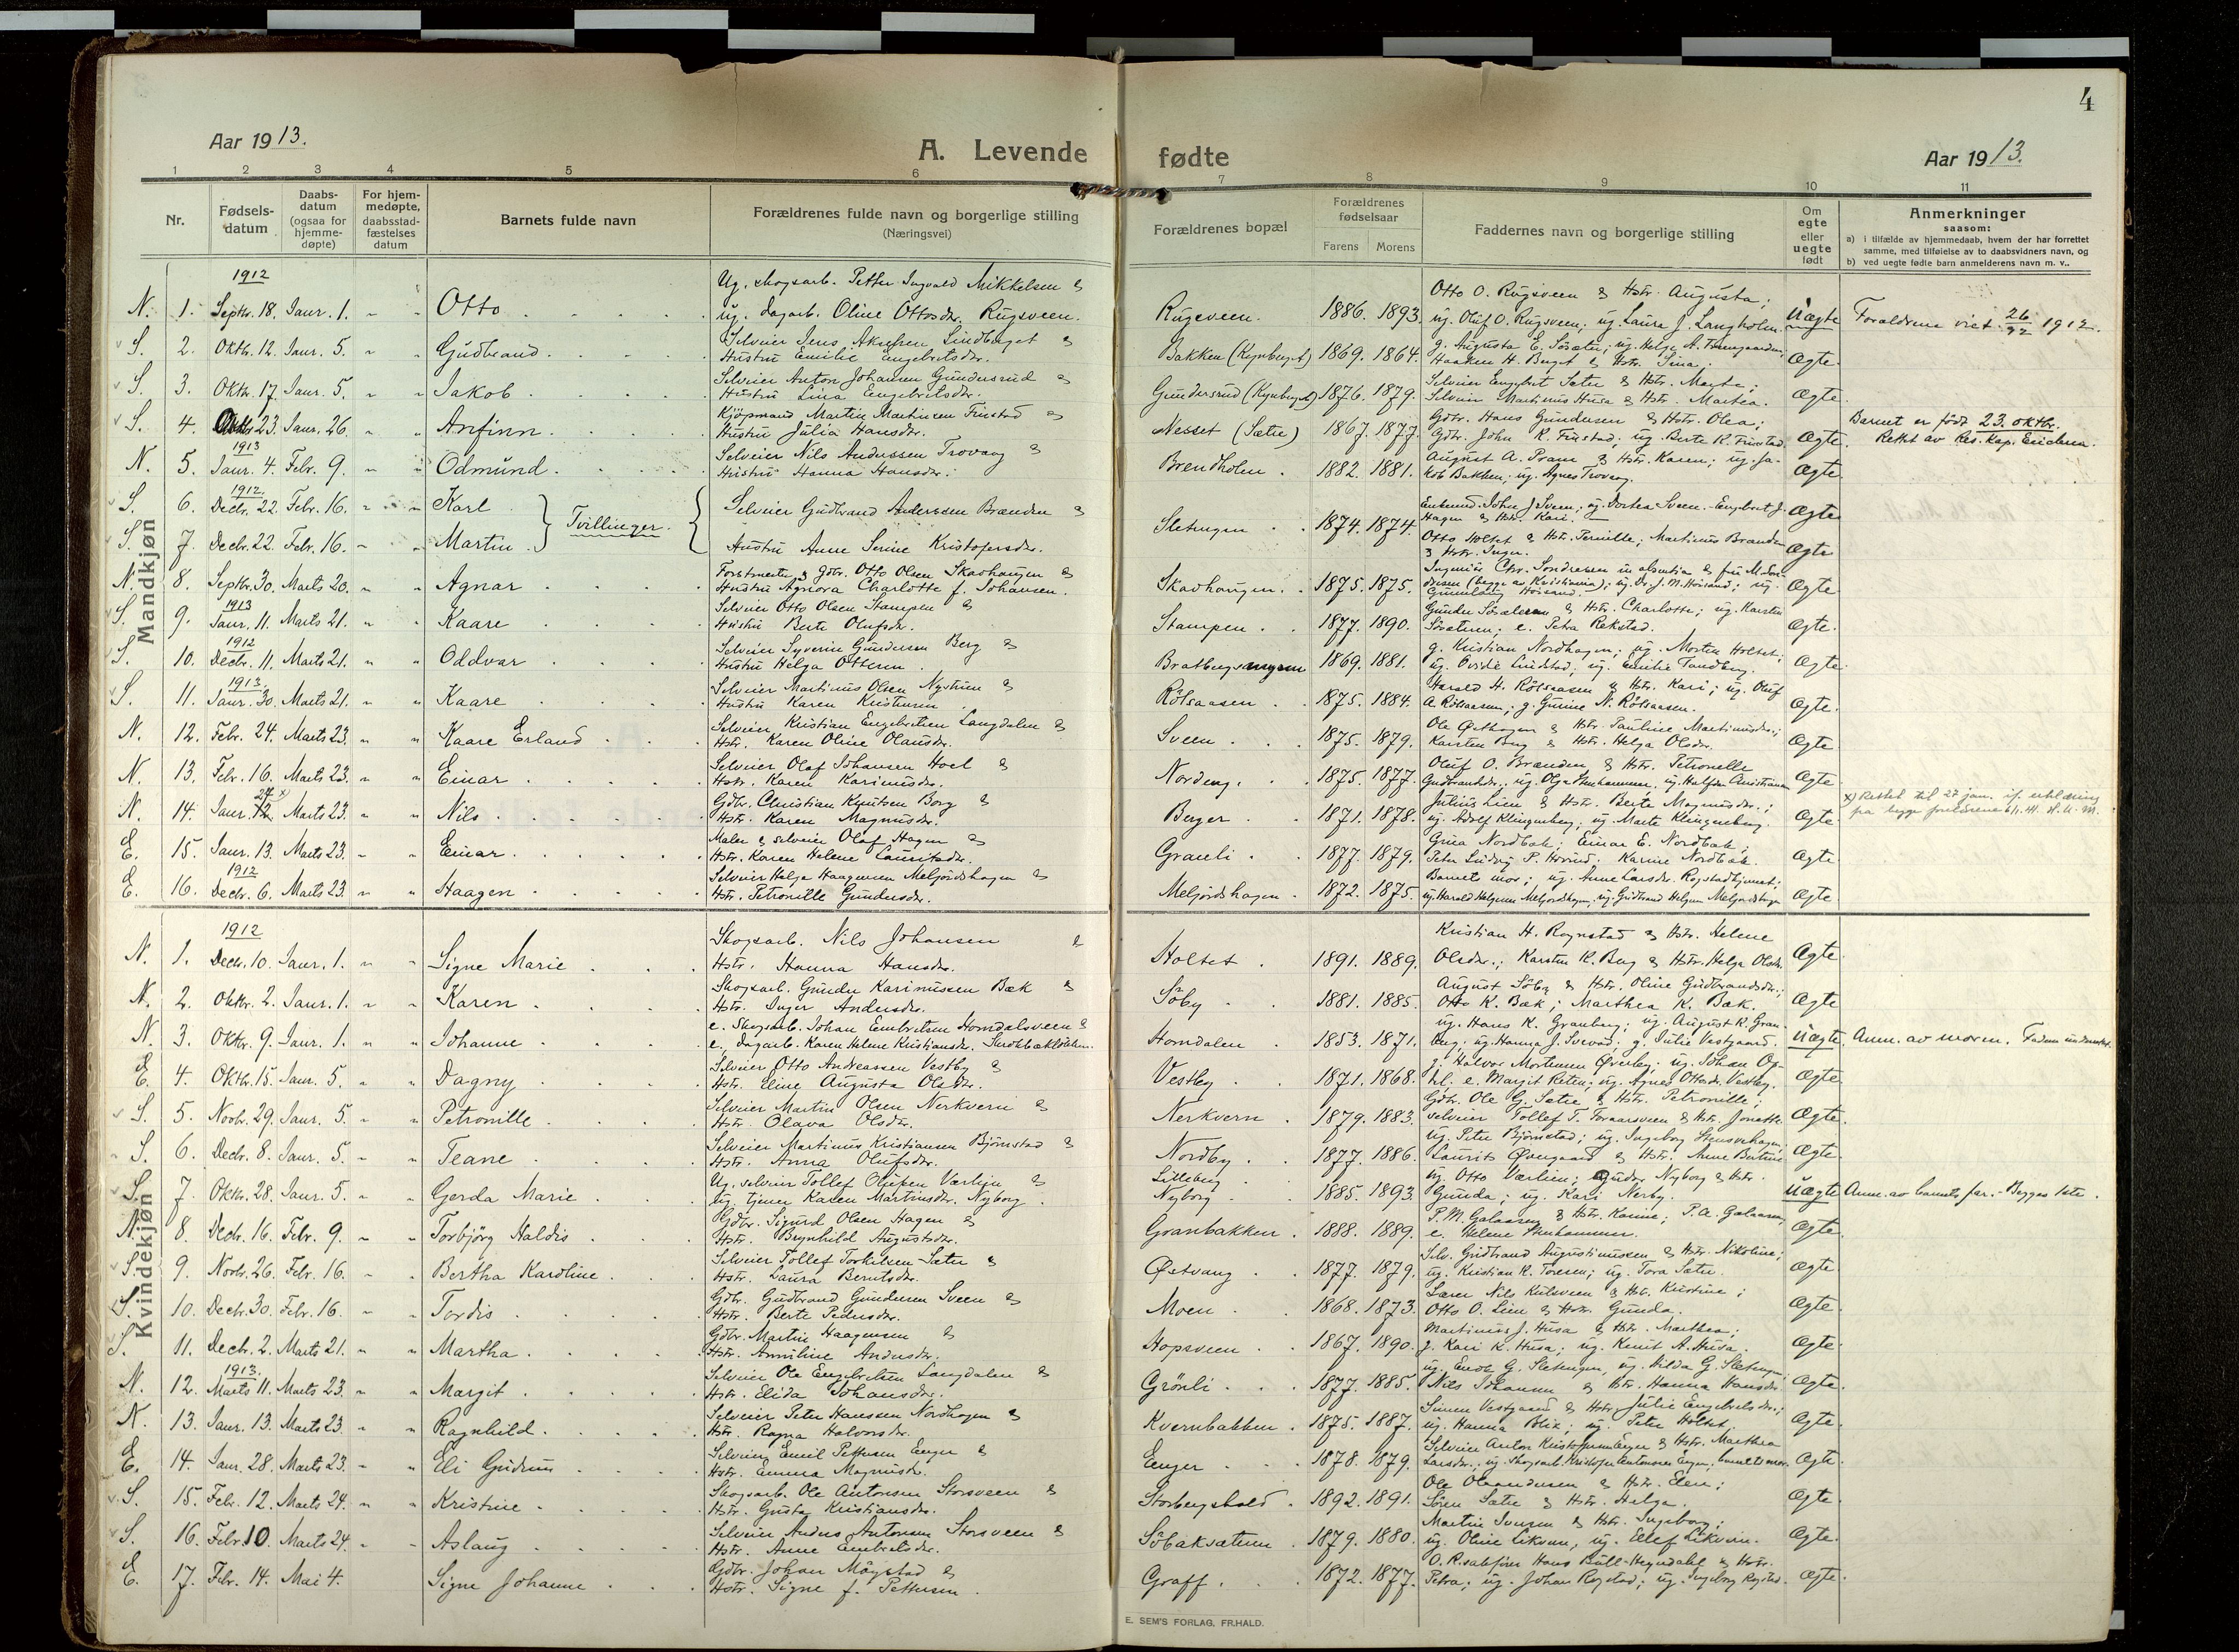 4
Aar 1913.
A. Levende fødte
Aar 1913.
1 2 3 4 5 6 7 8 9 10 11
Nr.
Fødsels-
datum
Daabs-
datum
(ogsaa for
hjemme-
døpte)
For hjem-
medøpte,
daabsstad-
fæstelses
datum
Barnets fulde navn
Forældrenes fulde navn og borgerlige stilling
(Næringsvei)
Forældrenes bopæl
Forældrenes
fødselsaar
Farens Morens
Faddernes navn og borgerlige stilling
Om
egte
eller
uegte
født
Anmerkninger
saasom:
a) i tilfælde av hjemmedaab, hvem der har forrettet
samme, med tilføielse av to daabsvidners navn, og
b) ved uegte fødte barn anmelderens navn m. v..
Mandkjøn
1912
Ug. skogsarb. Petter Ingvald Mikkelsen &
Otto O. Rugsveen & Hstr. Augusta;
N. 1. Septbr. 18. Janr. 1. " " Otto ug. dagarb. Oline Ottosdr. Rugsveen. Rugsveen. 1886. 1893. ug. Oluf O. Rugsveen; ug. Laura J. Langholm. Uægte Forældrene viet 26/12 1912.
Selveier Jens Akselsen Lindberget &
S. 2. Oktbr. 12. Janr. 5. " " Gudbrand. Hustru Emilie Engebretsdr. Bakken (Kynberget) 1869. 1864. Haaken H. Berget & Hstr. Lina. Ægte.
Selveier Anton Johansen Gundersrud &
Selveier Engebret Sæter & Hstr. Marte;
S. 3. Oktbr. 17. Janr. 5. " " Jakob. Hustru Lina Engebretsdr. Gundersrud (Kynberget) 1876. 1879. Selveier Martinus Husa & Hstr. Martea. Ægte.
Kjøpmand Martin Martinsen Finstad &
Gdbr. Hans Gundersen & Hstr. Olea;
S. 4. Oktbr. 23. Janr. 26. " " Arfinn. Hustru Julia Hansdr. Nesset (Sætre) 1867. 1877. Gdbr. John K. Finstad; ug. Berte K. Finstad. Ægte. Barnet er født 23. oktbr.
Rettet av Res. kap.
1913
Selveier Nils Anderssen Trovang &
August A. Pram & Hstr. Karen; ug. Ja-
N. 5. Janr. 4. Febr. 9. " " Odmund. Hustru Hanna Hansdr. Brendholen. 1882. 1881. kob Bakken; ug. Agnes Trovang. Ægte
1912.
S. 6. Decbr. 22. Febr. 16. " " Karl Tvillinger. Selveier Gudbrand Andersen Brænden & Sletengen 1874. 1874. Hagen & Hstr. Kari. Ægte
S. 7. Decbr. 22. Febr. 16. " " Martin Hustru Anne Serine Kristofersdr. Otto Holtet & Hstr. Pernille; Martinus Brænden
& Hstr. Inger. Ægte
Forstmester & gdbr. Otto Olsen Skavhaugen &
N. 8. Septbr. 30. Marts 20. " " Agnar Hustru Agnora Charlotte f. Johansen. Skavhaugen. 1875. 1875. Ægte
1913
Selveier Otto Olsen Stampen &
S. 9. Janr. 11. Marts 21. " " Kaare Hustru Berte Olufsdr. Stampen 1877. 1890. e. Petra Rekstad. Ægte.
1912
Selveier Syverin Gundersen Berg &
g. Kristian Nordhagen; ug. Morten Holtet;
S. 10. Decbr. 11. Marts 21. " " Oddvar Hustru Helga Ottersen. Bratbergsengen 1869. 1881. ug. Ovidie Lindstad; ug. Emilie Tandberg. Ægte
1913.
Selveier Martinus Olsen Nystuen &
Harald H. Rölsaasen & Hstr. Kari; ug. Oluf
S. 11. Janr. 30. Marts 21. " " Kaare Hustru Karen Kristiansen Rölsaasen 1875. 1884. A. Rölsaasen; g. Gunine N. Rölsaasen. Ægte.
Selveier Kristian Engebretsen Langdalen &
Ole Østhagen & Hstr. Pauline Martinusdr.;
N. 12. Febr. 24. Marts 23. " " Kaare Erland Hstr. Karen Oline Olausdr. Sveen 1875. 1879. Karsten Berg & Hstr. Helga Olsdr. Ægte
Selveier Olaf Johansen Hoel &
Oluf O. Brænden & Hstr. Petronelle
N. 13. Febr. 16. Marts 23. " " Einar Hstr. Karen Karinusdr. Nordeng. 1875. 1877. Gudbrandsdr.; ug. Olga Stenhammer, ug. Halfdan Christiansen Ægte
27 x)
Gdbr. Christian Knutsen Borg &
Julius Lien & Hstr. Berte Magnusdr.;
x) Rettet til 27 jan. if. erklæring
N. 14. Janr. 12. Marts 23. " " Nils Hstr. Karen Magnusdr. Berger 1871. 1878. ug. Adolf Klingenberg; ug. Marte Klingenberg. Ægte
Maler & selveier Olaf Hagen &
Guea Nordbak; Einar E. Nordbak;
E. 15. Janr. 13. Marts 23. " " Einar Hstr. Karen Helene Lauritsdr. Granli 1877. 1879. Karine Nordbak. Ægte
1912
Selveier Helge Haagensen Meljordshagen &
Barnets mor; ug. Anne Larsdr. Rogstadtjernet;
E. 16. Decbr. 6. Marts 23. " " Haagen Hstr. Petronille Gundersdr. Meljordshagen 1872. 1875. ug. Harald Helgesen Meljordshagen, ug. Gudbrand Helgesen Meljordshagen Ægte
Kvindekjøn
1912
Skogsarb. Nils Johansen &
Kristian H. Rognstad & Hstr. Helene
N. 1. Decbr. 10. Janr. 1. " " Signe Marie Hstr. Hanna Hansdr. Holtet 1891. 1889. Olsdr.; Karsten K. Berg & Hstr. Helga Olsdr. Ægte
Skogsarb. Gunder Karinussen Bæk &
August Söby & Hstr. Oline Gudbrandsdr.;
N. 2. Oktbr. 2. Janr. 1. " " Karen Hstr. Inger Andersdr. Söby 1881. 1885. Otto K. Bæk; Marthea K. Bæk. Ægte
e. Skogsarb. Johan Embretsen Horndalsveen &
ug. Hans K. Granberg; ug. August K. Gran-
N. 3. Oktbr. 9. Janr. 1. " " Johanne e. dagarb. Karen Helene Kristiansdr. Horndalen 1853. 1871. berg; ug. Hanna J. g. Julie Vestgaard. Uægte. Anm. av moren.
Selveier Otto Andreassen Vestby &
g. Halvor Mortensen Øverby; ug. Johan Op-
E. 4. Oktbr. 15. Janr. 5. " " Dagny Hstr. Eline Augusta Olsdr. Vestby 1871. 1868. e. Margit Reten; ug. Agnes Ottosdr. Vestby. Ægte
Selveier Martin Olsen Nerkvern &
Gdbr. Ole G. Sætre & Hstr. Petronille;
S. 5. Novbr. 29. Janr. 5. " " Petronille Hstr. Olava Olsdr. Nerkvern 1879. 1883. selveier Tollef T. & Hstr. Jonette Ægte.
Selveier Martinus Kristiansen Björnstad &
ug. Peter Björnstad; ug. Ingeborg
S. 6. Decbr. 8. Janr. 5. " " Teane Hstr. Anna Olufsdr. Nordby 1877. 1886. Laurits Øvergaard & Hstr. Anne Bertine Ægte
Ug. selveier Tollef Olsen Værlien &
Lilleberg
ug. Otto Værlien; Gunder Nyborg & Hstr.
S. 7. Oktbr. 28. Janr. 5. " " Gerda Marie Ug. tjener Karen Martinsdr. Nyborg. Nyborg 1885. 1893. Gunda; ug. Kari Nerby. Uægte Anm. av barnets far. - Begges 1ste.
Gdbr. Sigurd Olsen Hagen &
P. M. Galaasen & Hstr. Karine; P. A. Galaasen,
N. 8. Decbr. 16. Febr. 9. " " Torbjörg Haldis Hstr. Brynhild Augustsdr. Granbakken 1888. 1889. e. Helene Stenhammer. Ægte
Selveier Tollef Torkilsen Sæter &
Selv. Gudbrand Augustinussen & Hstr. Nikoline;
S. 9. Novbr. 26. Febr. 16. " " Bertha Karoline Hstr. Laura Berntsdr. Østvang 1877. 1879. ug. Kristian K. Toresen; ug. Tora Sæter. Ægte
Gdbr. Gudbrand Gundersen Sveen &
Lærer Nils Kulsveen & Hstr. Kristine;
S. 10. Decbr. 30. Febr. 16. " " Tordis Hstr. Berte Pedersdr. Moen 1868. 1873. Otto O. Lien & Hstr. Gunda. Ægte
Gdbr. Martin Haagensen &
Martinus J. Husa & Hstr. Marthea;
S. 11. Decbr. 2. Marts 21. " " Martha Hstr. Anniline Andersdr. Hopsveen 1867. 1890. g. Kari K. Husa; ug. Knut A. Husa. Ægte
1913.
Selveier Ole Engebretsen Langdalen &
ug. Enok G. Sletengen, ug. Hilda G. Sletengen
N. 12. Marts 11. Marts 23. " " Margit Hstr. Elida Johansdr. Grönli 1877. 1885. Nils Johansen & Hstr. Hanna Hansdr. Ægte.
Selveier Peter Hanssen Nordhagen &
Simen Vestgaard & Hstr. Julie Engebretsdr.;
N. 13. Janr. 13. Marts 23. " " Ragnhild Hstr. Ragna Halvorsdr. Kvernbakken 1875. 1887. ug. Hanna Blix; ug. Peter Holtet. Ægte
Selveier Emil Pettersen Enger &
Selveier Anton Kristofersen Enger & Hstr. Marthea
E. 14. Janr. 28. Marts 23. " " Eli Gudrun Hstr. Emma Magnusdr. Enger 1878. 1879. Larsdr.; ug. skogsarb. Kristofer Antonsen Enger; barnets mor. Ægte
Skogsarb. Ole Antonsen Storsveen &
Ole Olsen & Hstr. Elen;
S. 15. Febr. 12. Marts 24. " " Kristine Hstr. Gusta Kristiansdr. Storbergshold 1892. 1891. Sören Sætre & Hstr. Helga. Ægte
Selveier Anders Antonsen Storsveen &
Martin Iversen & Hstr. Ingeborg;
S. 16. Febr. 10. Marts 24. " " Aslaug Hstr. Anne Embretsdr. Söbaksætern 1879. 1880. ug. Oline Likvern, ug. Ellef Likvern. Ægte
Gdbr. Johan Mögstad &
O. R. sakfører Hans Bull-Heyerdahl & Hstr.
E. 17. Febr. 14. Mai 4. Signe Johanne Hstr. Signe f. Pettersen. Graff 1872. 1877. Petra; ug. Johan Rogstad; ug. Ingeborg Rogstad. Ægte
E. SEM'S FORLAG, FR.HALD.